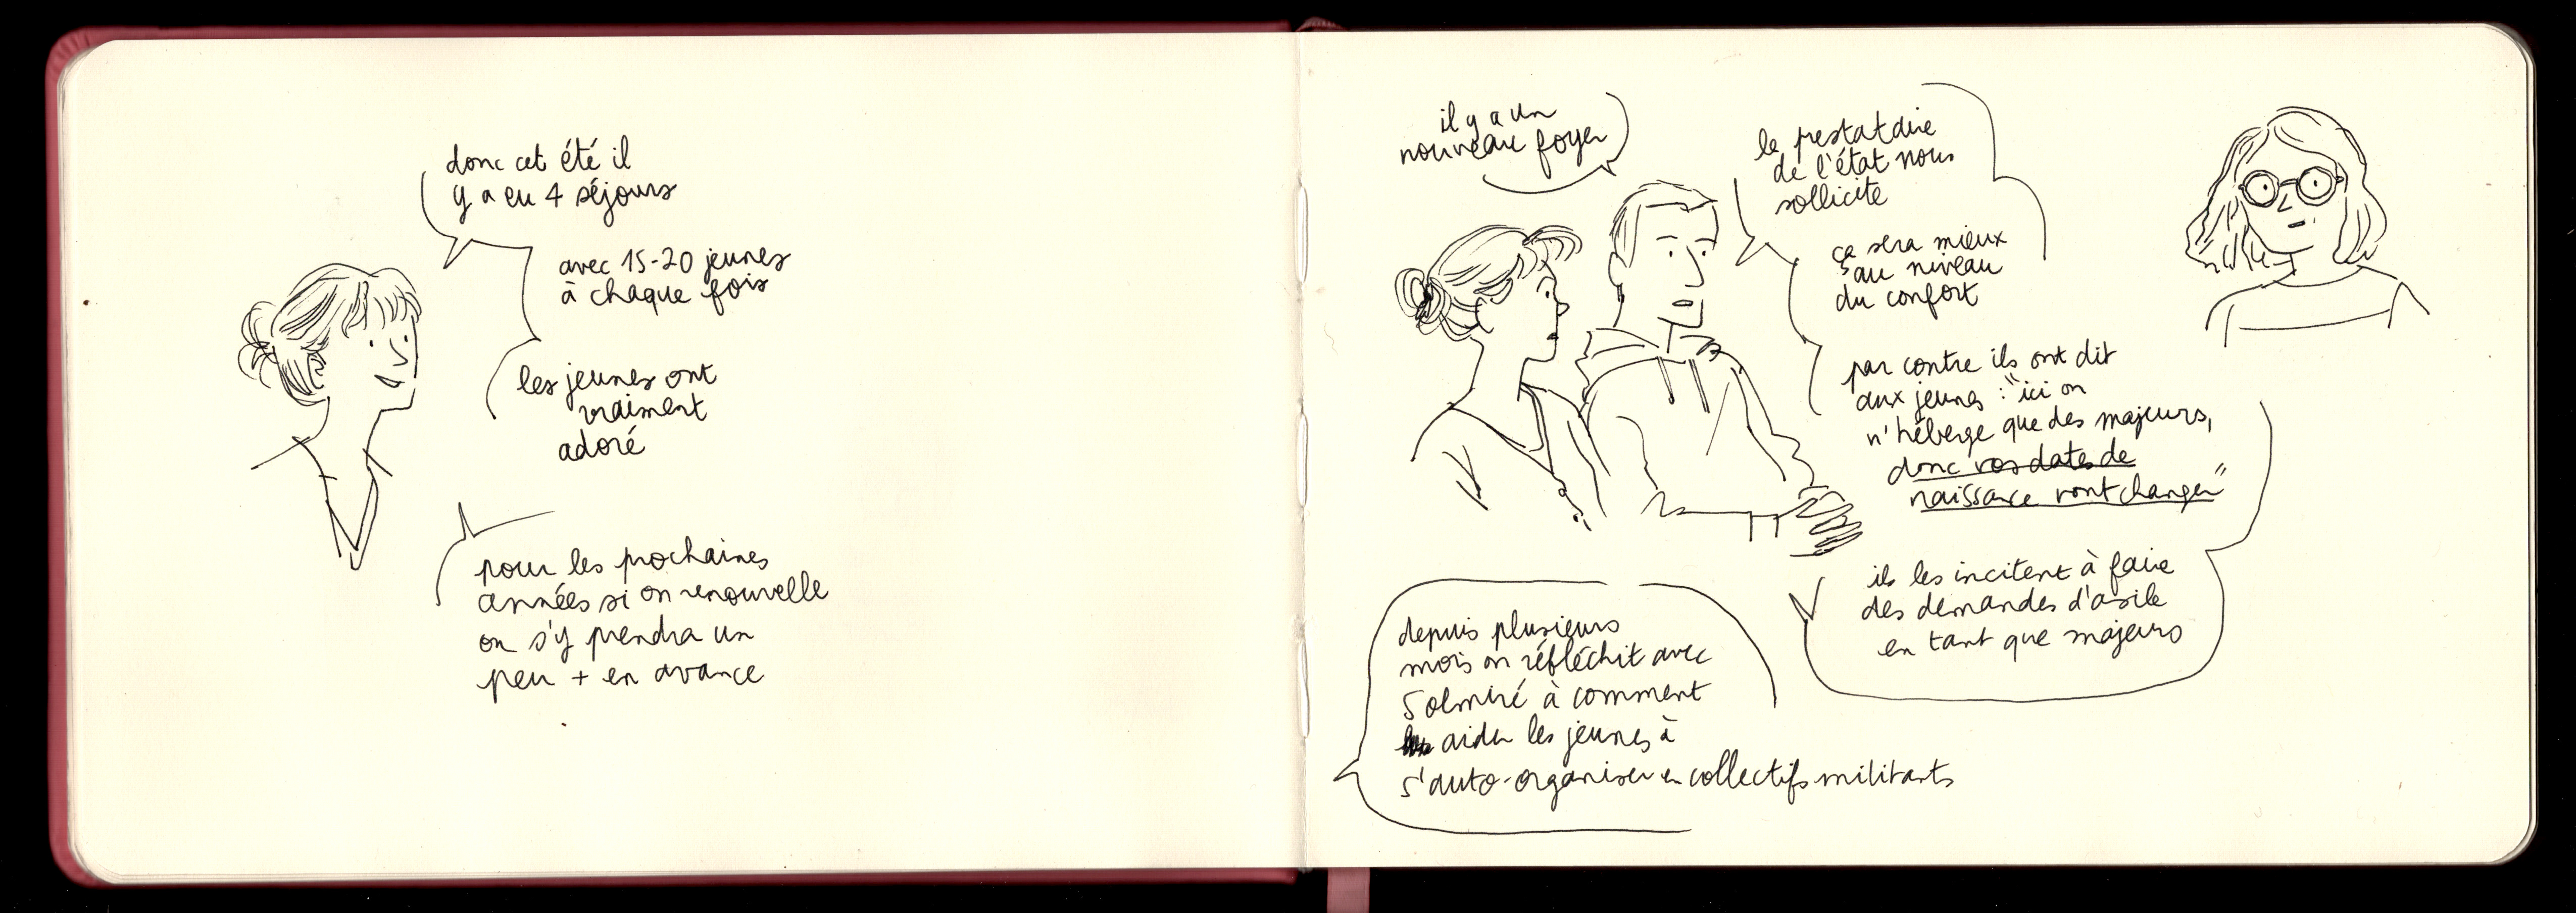 donc cet été il
y a eu 4 séjours
avec 15-20 jeunes
à chaque fois
les jeunes ont
vraiment
adoré
pour les prochaines
années si on renouvelle
on s'y prendra un
peu + en avance
il y a un
nouveau foyer
le prestataire
de l'état nous
sollicite
ça sera mieux
au niveau
du confort
par contre ils ont dit
aux jeunes : "ici on
n'héberge que des majeurs,
donc vos dates de
naissance vont changer"
ils les incitent à faire
des demandes d'asile
en tant que majeurs
depuis plusieurs
mois on réfléchit avec
Solmiré à comment
aider les jeunes à
s'auto-organiser en collectifs militants